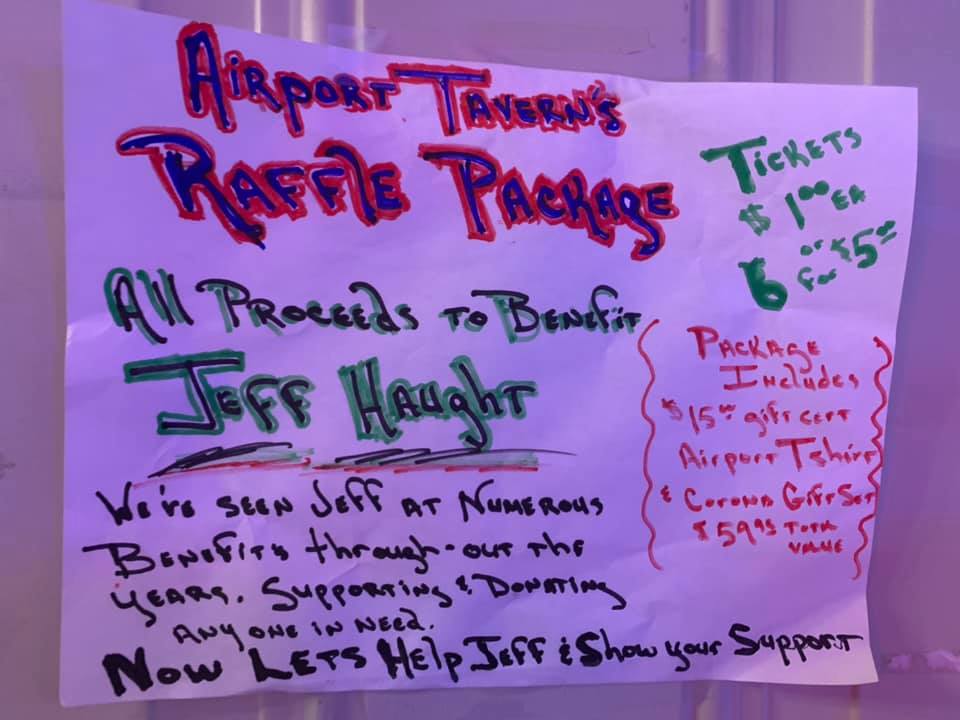 AIRPORT TAVERN'S
RAFFLE PACKAGE
TICKETS
$1.00 EA
or
6 for $5.00
All PROCEEDS TO BENEFIT
JEFF HAUGHT
PACKAGE
INCLUDES
$15.00 gift cert
AIRPORT Tshirt
& CORONA GIFT SET
$59.95 TOTAL
VALUE
WE'VE SEEN JEFF AT NUMEROUS
BENEFITS through-out the
YEARS. SUPPORTING & DONATING
ANYONE IN NEED.
NOW LETS HELP JEFF & Show your SUPPORT